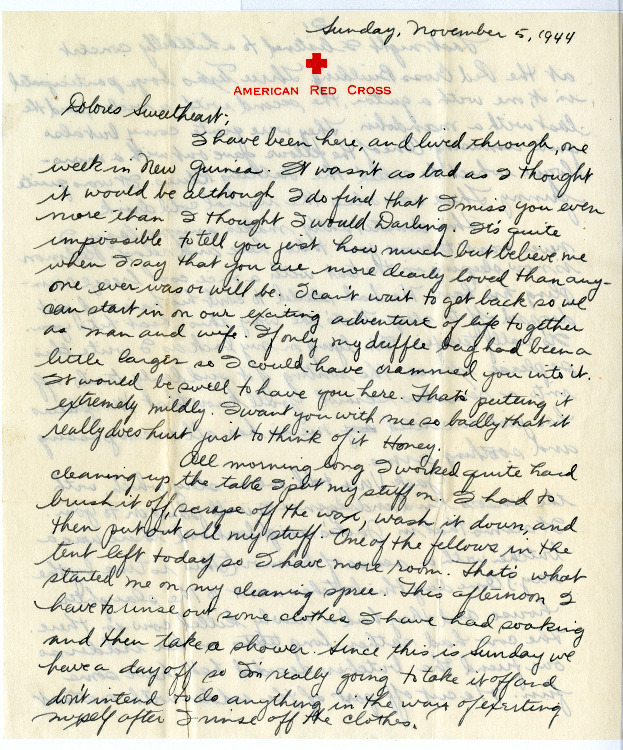 Sunday, November 5, 1944
AMERICAN RED CROSS
Dolores Sweetheart;
I have been here, and lived through, one
week in New Guinea. It wasn't as bad as I thought
it would be although I do find that I miss you even
more than I thought I would Darling. It's quite
impossible to tell you just how much but believe me
when I say that you are more dearly loved than any-
one ever was or will be. I can't wait to get back so we
can start in on our exciting adventure of life together
as man and wife. If only my duffle bag had been a
little larger so I could have crammed you into it.
It would be swell to have you here. That's putting it
extremely mildly. I want you with me so badly that it
really does hurt just to think of it Honey.
All morning long I worked quite hard
cleaning up the table I put my stuff on. I had to
brush it off, scrape off the wax, wash it down, and
then put out all my stuff. One of the fellows in the
tent left today so I have more room. That's what
started me on my cleaning spree. This afternoon I
have to rinse out some clothes I have had soaking
and then take a shower. Since this is Sunday we
have a day off so I'm really going to take it off and
don't intend to do anything in the way of exerting
myself after I rinse off the clothes.